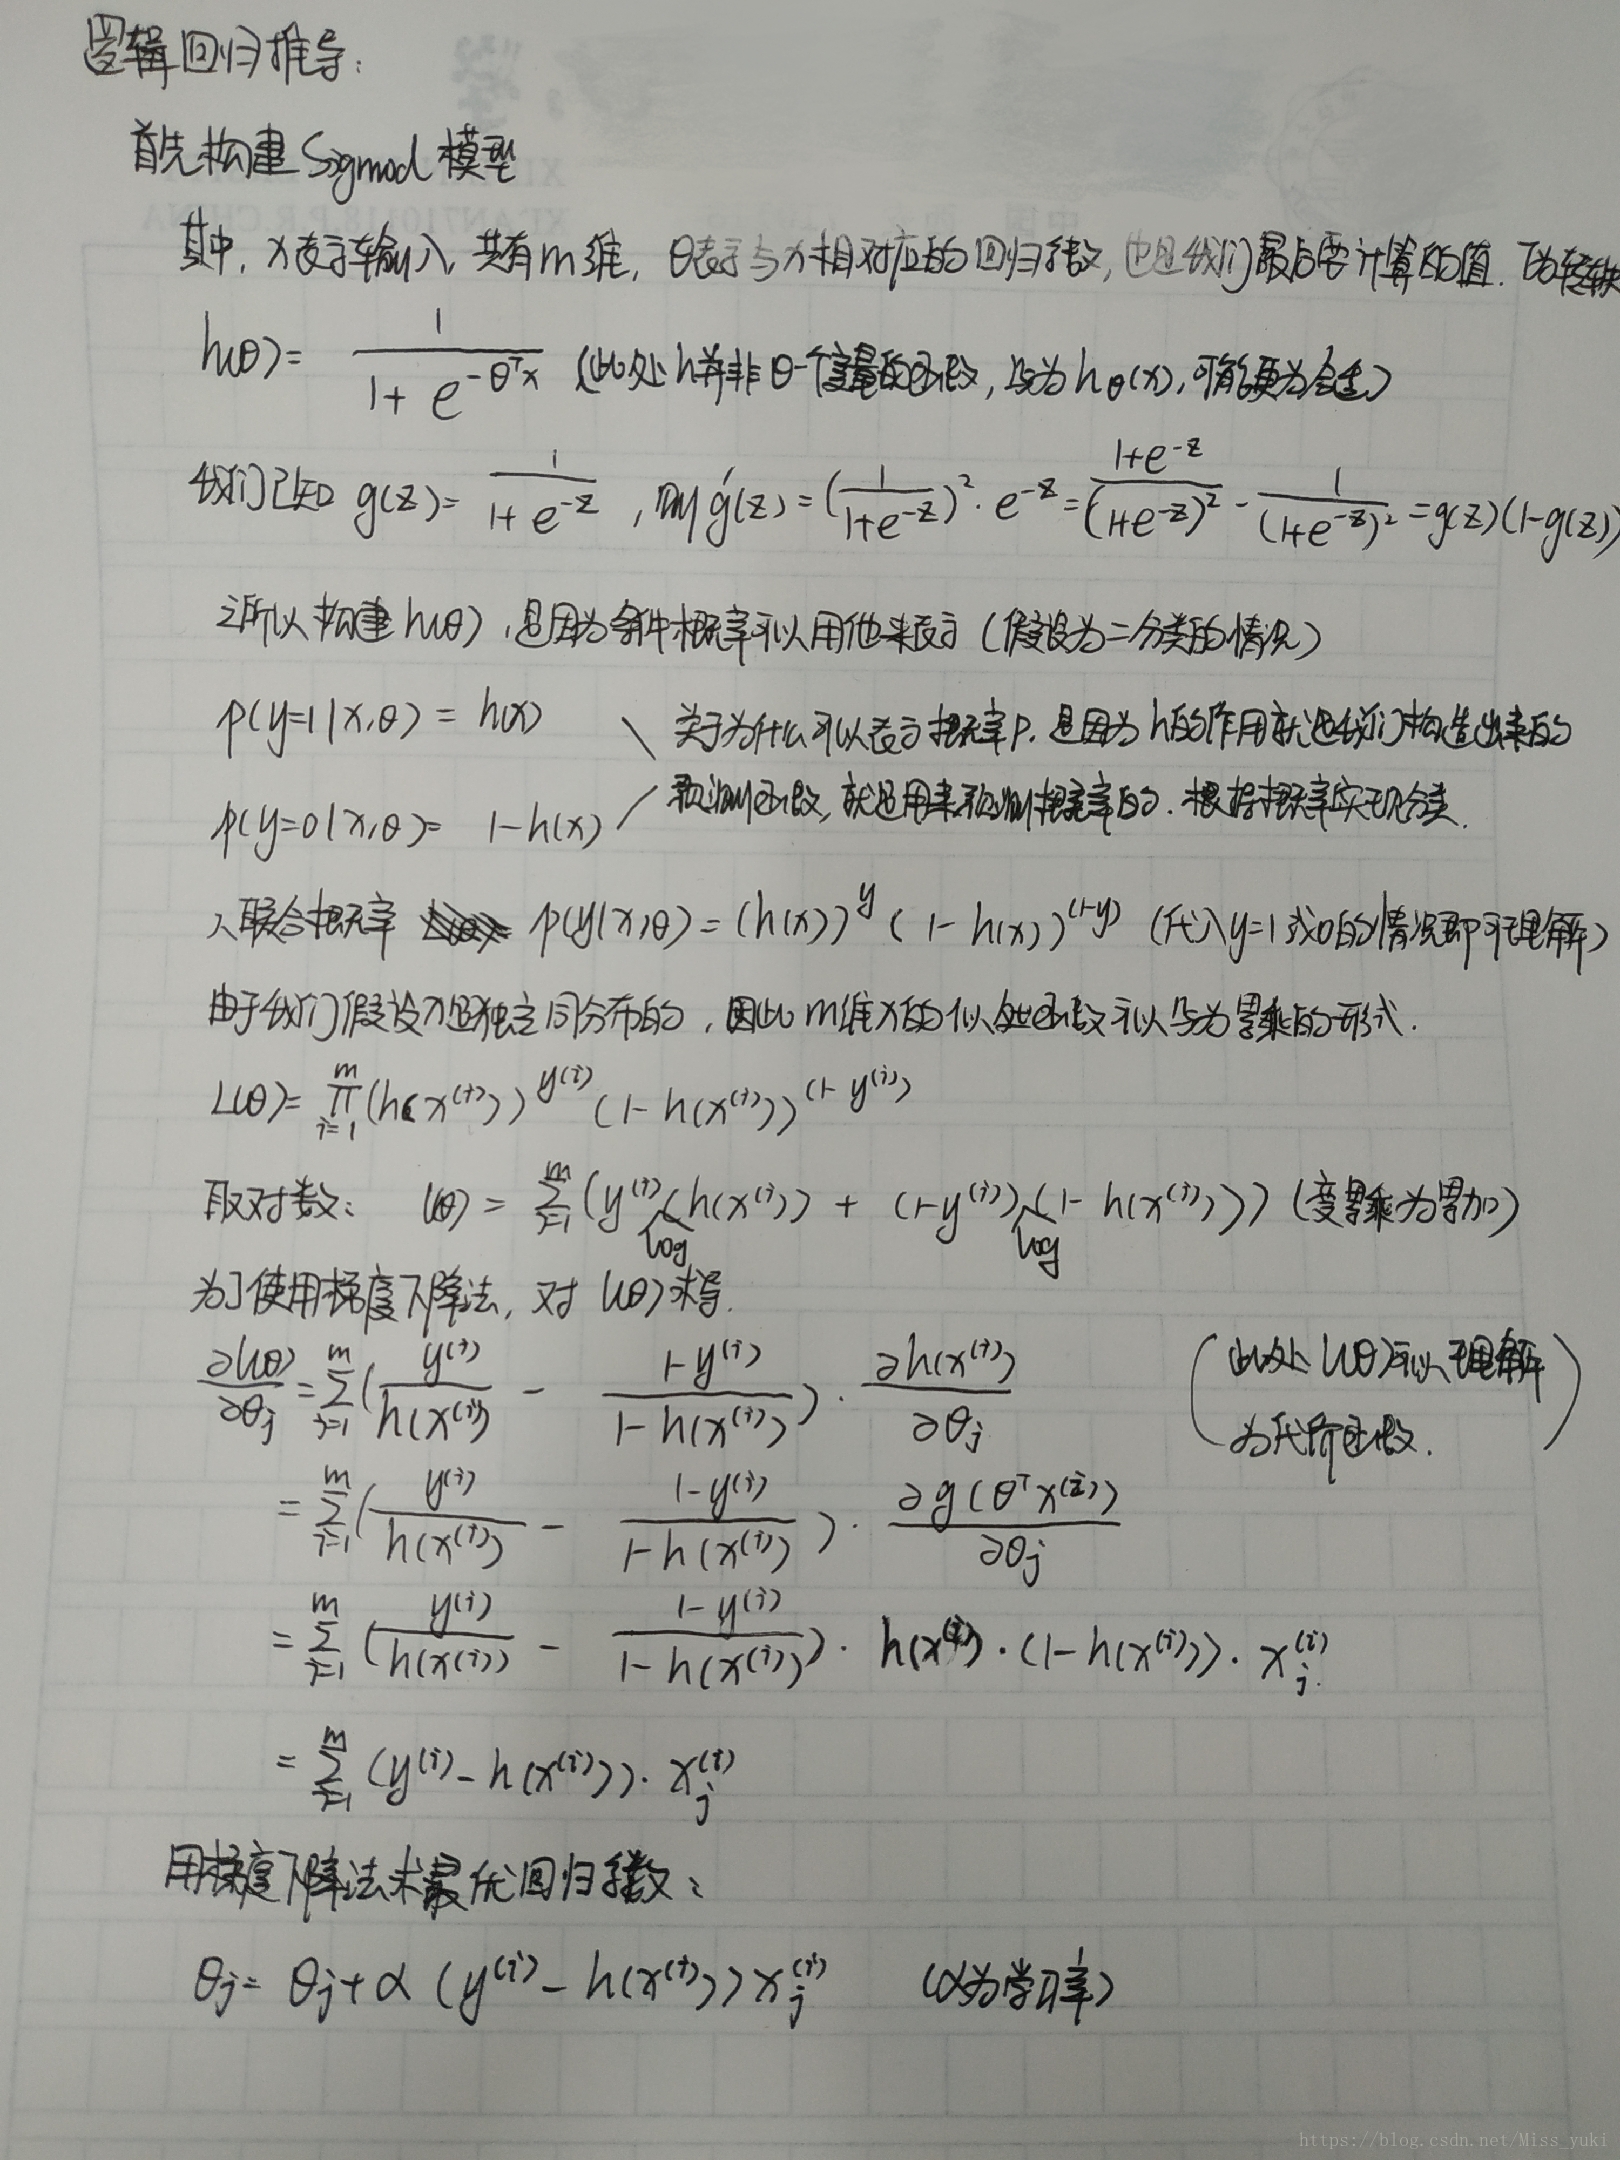 逻辑回归推导:
首先构建Sigmod模型
其中, x表示输入, 共有m维, θ表示与x相对应的回归系数, 也是我们最后要计算的值. T为转秩
h(θ) = \frac{1}{1+e^{-θ^T x}} (此处h并非θ一个变量的函数, 写为h_θ(x), 可能更为合适)
我们已知 g(z) = \frac{1}{1+e^{-z}}, 则 g'(z) = (\frac{1}{1+e^{-z}})^2 · e^{-z} = \frac{1+e^{-z}}{(1+e^{-z})^2} - \frac{1}{(1+e^{-z})^2} = g(z)(1-g(z))
之所以构建h(θ), 是因为条件概率可以用他来表示 (假设为二分类的情况)
p(y=1|x,θ) = h(x) \ 关于为什么可以表示概率p. 是因为h的作用就是我们构造出来的
p(y=0|x,θ) = 1-h(x) / 预测函数, 就是用来预测概率的. 根据概率实现分类.
联合概率 p(y|x,θ) = (h(x))^y (1-h(x))^{(1-y)} (代入y=1或0的情况即可理解)
由于我们假设x是独立同分布的, 因此m维x的似然函数可以写为累乘的形式.
L(θ) = \prod_{i=1}^{m} (h(x^{(i)}))^{y^{(i)}} (1-h(x^{(i)}))^{(1-y^{(i)})}
取对数: l(θ) = \sum_{i=1}^{m} (y^{(i)} log(h(x^{(i)})) + (1-y^{(i)}) log(1-h(x^{(i)}))) (变累乘为累加)
为了使用梯度下降法, 对 l(θ)求导.
\frac{∂l(θ)}{∂θ_j} = \sum_{i=1}^{m} (\frac{y^{(i)}}{h(x^{(i)})} - \frac{1-y^{(i)}}{1-h(x^{(i)})}) · \frac{∂h(x^{(i)})}{∂θ_j} (此处l(θ)可以理解为代价函数.)
= \sum_{i=1}^{m} (\frac{y^{(i)}}{h(x^{(i)})} - \frac{1-y^{(i)}}{1-h(x^{(i)})}) · \frac{∂g(θ^T x^{(i)})}{∂θ_j}
= \sum_{i=1}^{m} (\frac{y^{(i)}}{h(x^{(i)})} - \frac{1-y^{(i)}}{1-h(x^{(i)})}) · h(x^{(i)}) · (1-h(x^{(i)})) · x_j^{(i)}
= \sum_{i=1}^{m} (y^{(i)} - h(x^{(i)})) · x_j^{(i)}
用梯度下降法求最优回归系数:
θ_j = θ_j + α (y^{(i)} - h(x^{(i)})) x_j^{(i)} (α为学习率)
https://blog.csdn.net/Miss_yuki